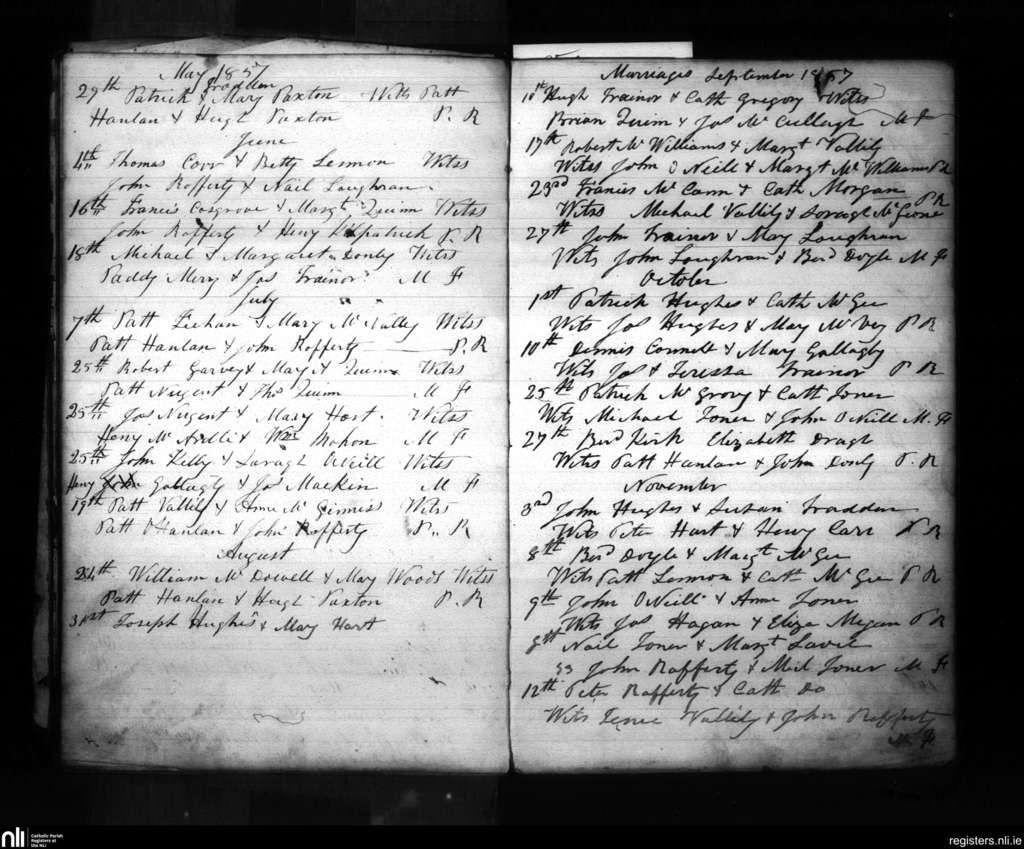 May 1857
Fradden
29th Patrick & Mary Paxton Witts Patt
Hanlan & Hugh Paxton P. R
June
4th Thomas Corr & Betty Lennon Witss
John Rofferty & Nail Loughran
16th Francis Cosgrove & Margt Quinn Witss
John Rofferty & Heny Fitzpatrick P. R
18th Michael & Margaret Donly Witss
Paddy Mery & Jas Trainor M F
July
7th Patt Feehan & Mary McNally Witss
Patt Hanlan & John Rofferty P. R
25th Robert Garvey & Mary A Quinn Witss
Patt Nugent & Thos Quinn M F
25th Jas Nugent & Mary Hart. Witss
Heny McArdle & Wm Mahon M F
25th John Kelly & Saragh ONeill Witss
Heny Gollogly & Jas Mackin M F
19th Patt Vallily & Anne McGinniss Witss
Patt OHanlan & John Rofferty P.. R
August
24th William McDowell & Mary Woods Witss
Patt Hanlan & Hugh Paxton P. R
31st Joseph Hughes & Mary Hart
Marriages September 1857
10th Hugh Trainor & Cath Gregory Witss
Brian Quinn & Jas McCullagh M F
17th Robert McWilliams & Margt Vallily
Witss John ONeill & Margt McWilliams P R
23rd Francis McCann & Cath Morgan
P R
Witss Michael Vallily & Saragh McGeone
27th John Trainor & May Loughran
Wits John Loughran & Berd Doyle M F
October
1st Patrick Hughes & Cath McGee
Wits Jas Hughes & May McVey P R
10th Dennis Connell & Mary Gollogly
Wits Jas & Teressa Trainor P R
25th Patrick McGrory & Cath Toner
Wits Michael Toner & John ONeill M. F
27th Berd Kirk Elizabeth Dragh
Witss Patt Hanlan & John Donly P. R
November
3rd John Hughes & Susan Fradden
Wits Peter Hart & Henry Carr P R
8th Berd Doyle & Margt McGee
Wits Patt Lennon & Cath McGee P R
9th John ONeill & Anne Toner
Wits Jas Hagan & Eliza Megan P R
8th Nail Toner & Margt Lavel
ss John Rafferty & Mil Toner M F
12th Peter Rafferty & Cath Do
Wits Vallily & John Rofferty
M F
nli
Catholic Parish
Registers at
the NLI
registers.nli.ie